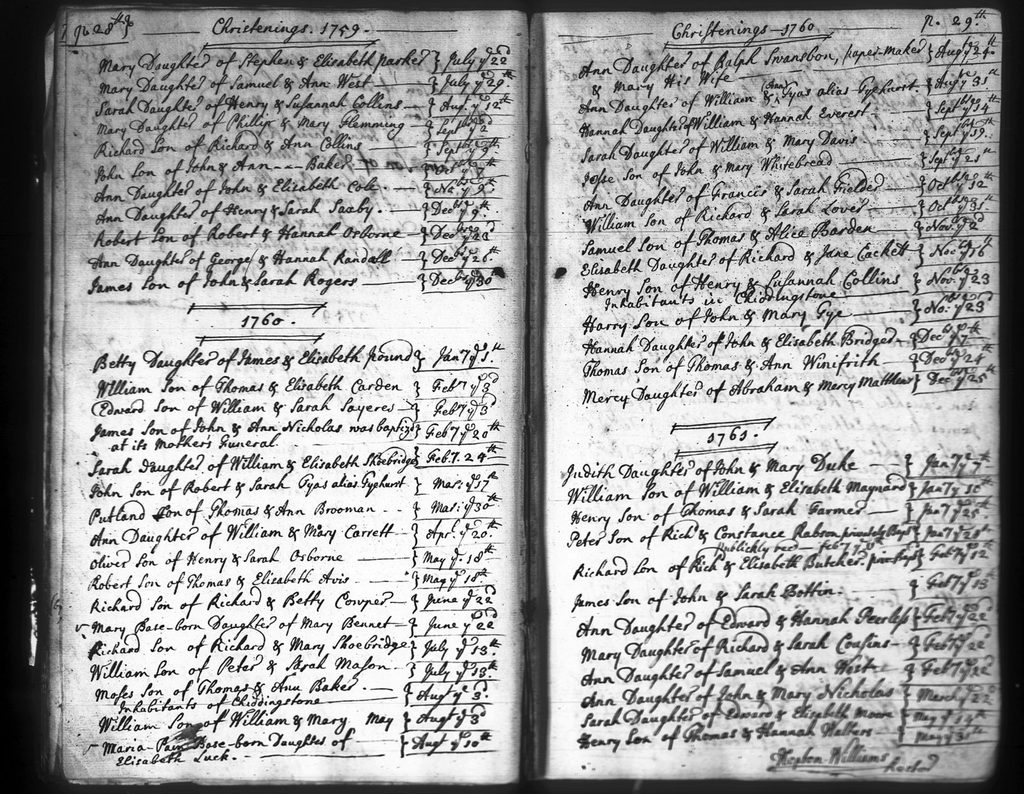 p. 28th
Christenings. 1759.
Mary Daughter of Stephen & Elisabeth parker } July ye 22d
Mary Daughter of Samuel & Ann West } July ye 29th
Sarah Daughter of Henry & Susannah Collins } Aug. ye 12th
Mary Daughter of Philip & Mary Flemming } Septbr ye 2d
Richard Son of Richard & Ann Collins } Septbr ye
John Son of John & Ann Baker } Octbr ye
Ann Daughter of John & Elizabeth Cole. } Novbr ye 9th
Ann Daughter of Henry & Sarah Saxby. } Decbr ye 9th
Robert Son of Robert & Hannah Osborne } Decbr ye 23d
Ann Daughter of George & Hannah Randall } Decbr ye 26th
James Son of John & Sarah Rogers } Decbr ye 30th
1760.
Betty Daughter of James & Elisabeth pound } Jany ye 1st
William Son of Thomas & Elisabeth Carden } Feby ye 3d
Edward Son of William & Sarah Sayeres } Feby ye 3d
James Son of John & Ann Nicholas was baptizd } Feby ye 20th
at its Mother's Funeral
Sarah Daughter of William & Elisabeth Shoebridge } Feby. 24th
John Son of Robert & Sarah Tyas alias Tyehurst } Mar: ye 17th
Putland Son of Thomas & Ann Brooman } Mar: ye 30th
Ann Daughter of William & Mary Carrett } Apr. ye 20th
Oliver Son of Henry & Sarah Osborne } May ye 18th
Robert Son of Thomas & Elisabeth Avis } May ye 18th
Richard Son of Richard & Betty Cowper } June ye 22d
Mary Base-born Daughter of Mary Bennet } June ye 22d
Richard Son of Richard & Mary Shoebridge } July ye 13th
William Son of Peter & Sarah Mason } July ye 13th
Moses Son of Thomas & Ann Baker } Augt ye 3d
Inhabitants of Chiddingstone
William Son of William & Mary May } Augt ye 3d
Maria Pain Base-born Daughter of } Augt ye 10th
Elisabeth Luck.
p. 29th
Christenings 1760
Ann Daughter of Ralph Swansbon, paper-maker } Augt ye 24th
& Mary His Wife
Ann Daughter of William & Ann Tyas alias Tyehurst } Augt ye 31st
Hannah Daughter of William & Hannah Everest } Septbr ye
Sarah Daughter of William & Mary Davis } Septbr ye 19th
Jesse Son of John & Mary Whitebread } Septbr ye 21st
Ann Daughter of Francis & Sarah Fielder } Octbr ye 12th
William Son of Richard & Sarah Lover } Octbr ye
Samuel Son of Thomas & Alice Barden } Novbr ye 2d
Elisabeth Daughter of Richard & Jane Cackett } Novbr ye 16th
Henry Son of Henry & Susannah Collins } Novbr ye 23
Inhabitants in Chiddingstone
Harry Son of John & Mary Gye } Novbr ye 23d
Hannah Daughter of John & Elisabeth Bridger } Decbr ye 7th
Thomas Son of Thomas & Ann Winifrith } Decbr ye 21st
Mercy Daughter of Abraham & Mercy Matthews } Decbr ye 25th
1761.
Judith Daughter of John & Mary Duke } Jany ye 7th
William Son of William & Elisabeth Maynard } Jany ye 18th
Henry Son of Thomas & Sarah Farmer } Jany ye 25th
Peter Son of Richd & Constance Rabson privately Bapd } Jany ye 28th
Publickly recd Feby
Richard Son of Richd & Elisabeth Butcher. privt Bapd } Feby ye 12th
James Son of John & Sarah Bottin. } Feby ye 15
Ann Daughter of Edward & Hannah Peerless } Feby ye 22d
Mary Daughter of Richard & Sarah Cousins } Feby ye 22
Ann Daughter of Samuel & Ann West } Feby ye 22d
Ann Daughter of John & Mary Nicholas } March ye 22d
Sarah Daughter of Edward & Elisabeth Moon } May ye 19th
Henry Son of Thomas & Hannah Walters } May ye 31st
Stephen Williams
Rector